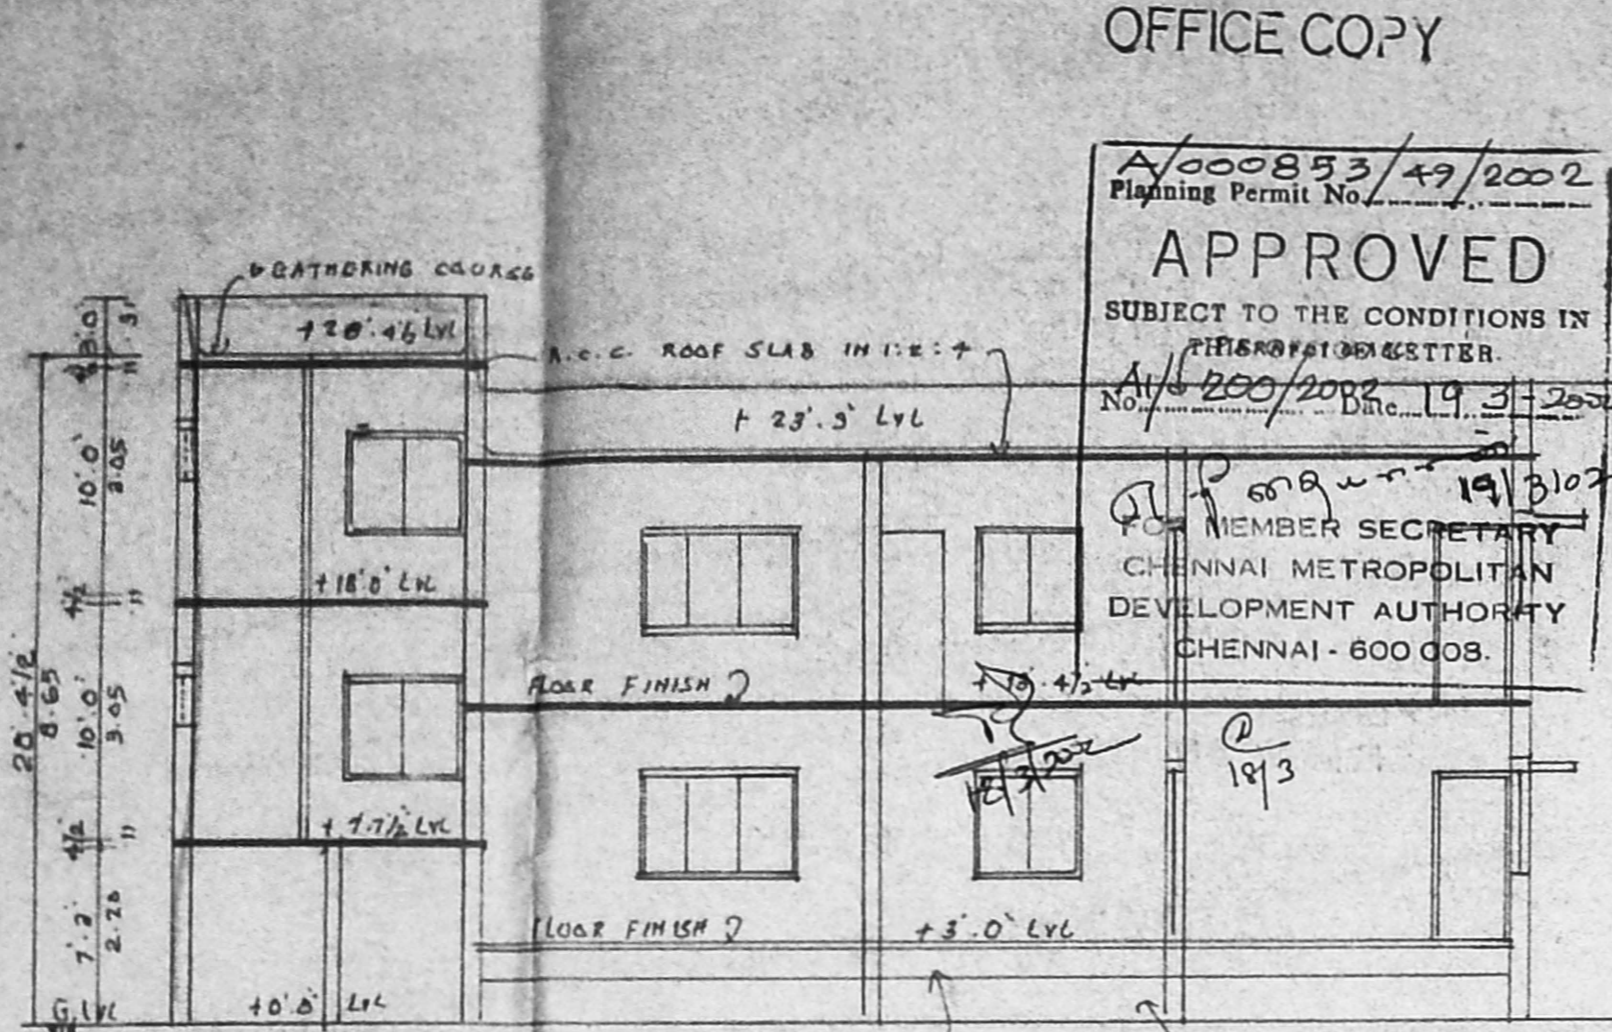 OFFICE COPY
A/000853/49/2002
Planning Permit No.
APPROVED
SUBJECT TO THE CONDITIONS IN
LETTER.
No. 200/2002 Date 19 3 - 2002
19/3/02
FOR MEMBER SECRETARY
CHENNAI METROPOLITAN
DEVELOPMENT AUTHORITY
CHENNAI - 600 008.
WEATHERING COURSE
R.C.C. ROOF SLAB IN 1:2:4
+ 23'.9" LVL
+ 18'.0" LVL
FLOOR FINISH
4½ LVL
18/3/2002
18/3
+ 7.7½ LVL
FLOOR FINISH
+ 3'.0" LVL
+0'.0" LVL
G. LVL
3'.0"
10'.0"
3.05
4½
10'.0"
3.05
4½
7'.3"
2.20
8.65